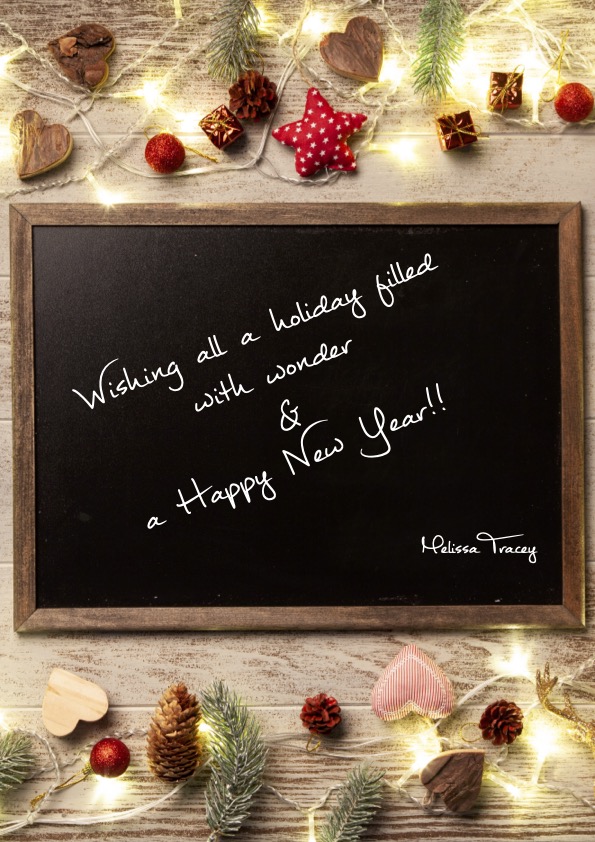 Wishing all a holiday filled
with wonder
&
a Happy New Year!!
Melissa Tracey